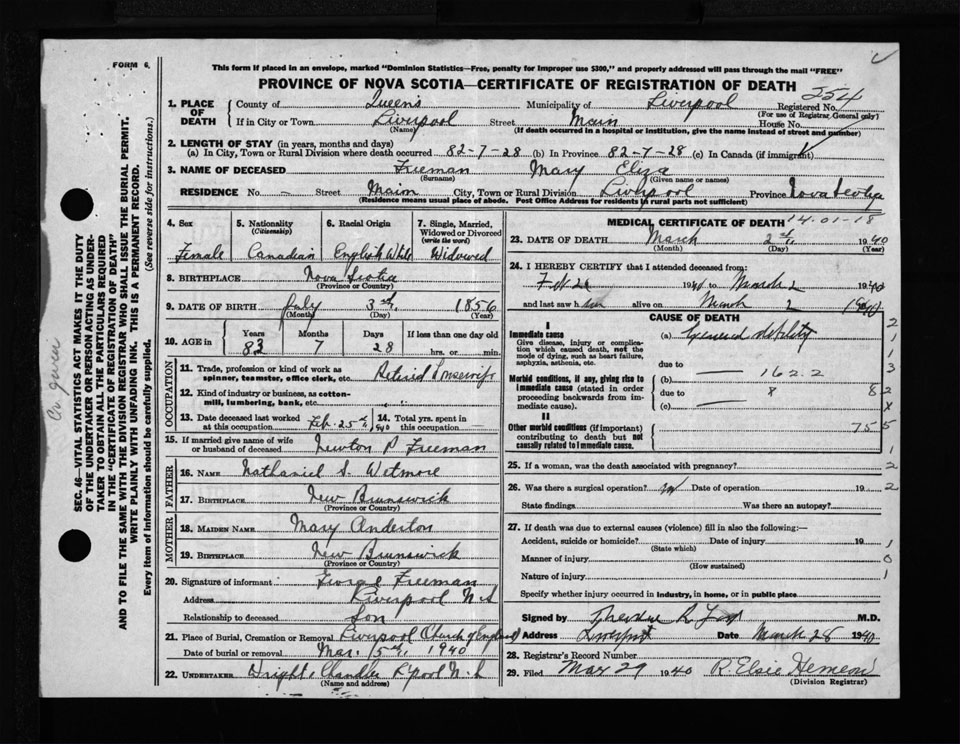 FORM 6.
This form if placed in an envelope, marked "Dominion Statistics—Free, penalty for improper use $300," and properly addressed will pass through the mail "FREE"
PROVINCE OF NOVA SCOTIA—CERTIFICATE OF REGISTRATION OF DEATH
254
1. PLACE OF DEATH
County of Queens Municipality of Liverpool Registered No.
(For use of Registrar General only)
If in City or Town Liverpool Street Main House No.
(Name) (If death occurred in a hospital or institution, give the name instead of street and number)
2. LENGTH OF STAY (in years, months and days)
(a) In City, Town or Rural Division where death occurred 82-7-28 (b) In Province 82-7-28 (c) In Canada (if immigrant)
3. NAME OF DECEASED Freeman Mary Eliza
(Surname) (Given name or names)
RESIDENCE No. — Street Main City, Town or Rural Division Liverpool Province Nova Scotia
(Residence means usual place of abode. Post Office Address for residents in rural parts not sufficient)
4. Sex 5. Nationality (Citizenship) 6. Racial Origin 7. Single, Married, Widowed or Divorced (write the word)
Female Canadian English White Widowed
8. BIRTHPLACE Nova Scotia
(Province or Country)
9. DATE OF BIRTH July 3rd 1856
(Month) (Day) (Year)
10. AGE in Years Months Days If less than one day old
83 7 28 hrs. or min.
OCCUPATION
11. Trade, profession or kind of work as spinner, teamster, office clerk, etc. Retired Housewife
12. Kind of industry or business, as cotton-mill, lumbering, bank, etc.
13. Date deceased last worked at this occupation Feb. 25th, 1940 14. Total yrs. spent in this occupation
15. If married give name of wife or husband of deceased Newton P Freeman
FATHER
16. NAME Nathaniel S. Wetmore
17. BIRTHPLACE New Brunswick
(Province or Country)
MOTHER
18. MAIDEN NAME Mary Anderton
19. BIRTHPLACE New Brunswick
(Province or Country)
20. Signature of informant George Freeman
Address Liverpool N.S
Relationship to deceased Son
21. Place of Burial, Cremation or Removal Liverpool (Church of England)
Date of burial or removal Mar. 5th, 1940
22. UNDERTAKER Wright, Chandler L'pool N.S
(Name and address)
MEDICAL CERTIFICATE OF DEATH 14-01-18
23. DATE OF DEATH March 2nd, 1940
(Month) (Day) (Year)
24. I HEREBY CERTIFY that I attended deceased from:
Feb 21 1940 to March 2 1940
and last saw her alive on March 2 1940
CAUSE OF DEATH
I
Immediate cause
Give disease, injury or complication which caused death, not the mode of dying, such as heart failure, asphyxia, asthenia, etc.
(a) General debility
due to
Morbid conditions, if any, giving rise to immediate cause (stated in order proceeding backwards from immediate cause).
(b) 162.2
due to 8 8
(c)
II
Other morbid conditions (if important) contributing to death but not causally related to immediate cause.
755
25. If a woman, was the death associated with pregnancy?
26. Was there a surgical operation? no Date of operation 19
State findings Was there an autopsy?
27. If death was due to external causes (violence) fill in also the following:—
Accident, suicide or homicide? Date of injury 19
(State which)
Manner of injury
(How sustained)
Nature of injury
Specify whether injury occurred in industry, in home, or in public place
Signed by Theodore R Ford M.D.
Address Liverpool Date March 28 1940
28. Registrar's Record Number
29. Filed Mar 29 1940 R. Elsie Hemeon
(Division Registrar)
SEC. 46—VITAL STATISTICS ACT MAKES IT THE DUTY
OF THE UNDERTAKER OR PERSON ACTING AS UNDER-
TAKER TO OBTAIN ALL THE PARTICULARS REQUIRED
IN THE "CERTIFICATE OF REGISTRATION OF DEATH"
AND TO FILE THE SAME WITH THE DIVISION REGISTRAR WHO SHALL ISSUE THE BURIAL PERMIT.
WRITE PLAINLY WITH UNFADING INK. THIS IS A PERMANENT RECORD.
Every item of information should be carefully supplied. (See reverse side for instructions.)